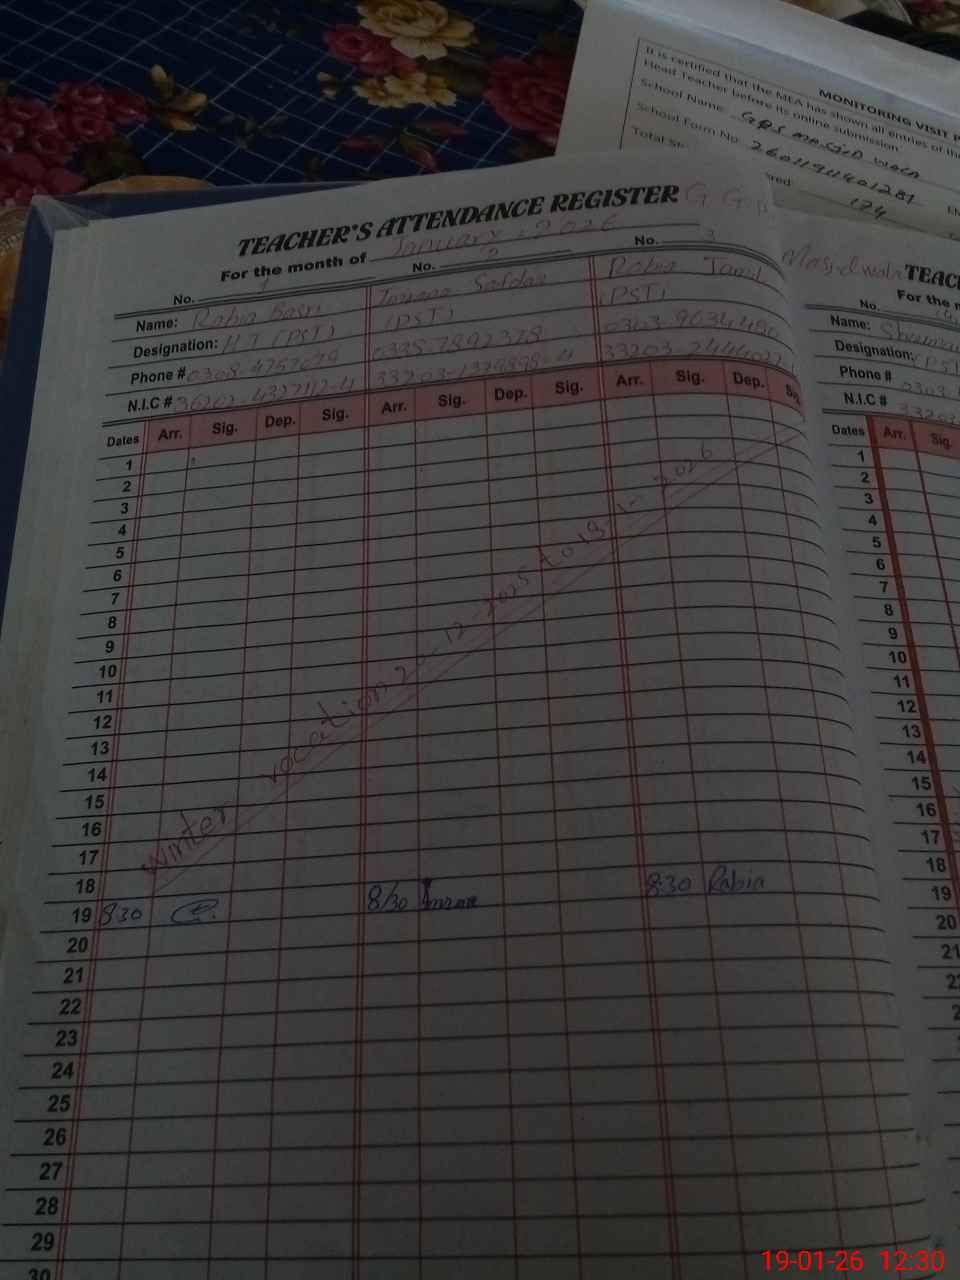 It is certified that the MEA has shown all entries of the
Head Teacher before its online submission.
MONITORING VISIT
School Name: GPS MASJID WALA
School Form No. 2601191401281
Total
174
TEACHER'S ATTENDANCE REGISTER
For the month of January. 2026
No. 1 No. 2 No. 3
Name: Rabia Basri Safdar Rabia Jamil
Designation: H.T (PST) (PST) (PST)
Phone # 0308-4757679 0335-7892378 0303-9634480
N.I.C #
Dates Arr. Sig. Dep. Sig. Arr. Sig. Dep. Sig. Arr. Sig. Dep. Sig.
1
2
3
4
5
6
7
8
9
10
11
12
13
14
15
16
17
18
winter vocation 20-12-2025 to 18-1-2026
19 830 8/30 8:30 Rabia
20
21
22
23
24
25
26
27
28
29
30
Masjid wala
TEAC
For the
No.
Name:
Designation: (PST
Phone # 0303
N.I.C # 33203
Dates Arr. Sig.
1
2
3
4
5
6
7
8
9
10
11
12
13
14
15
16
17
18
19
20
21
19-01-26 12:30